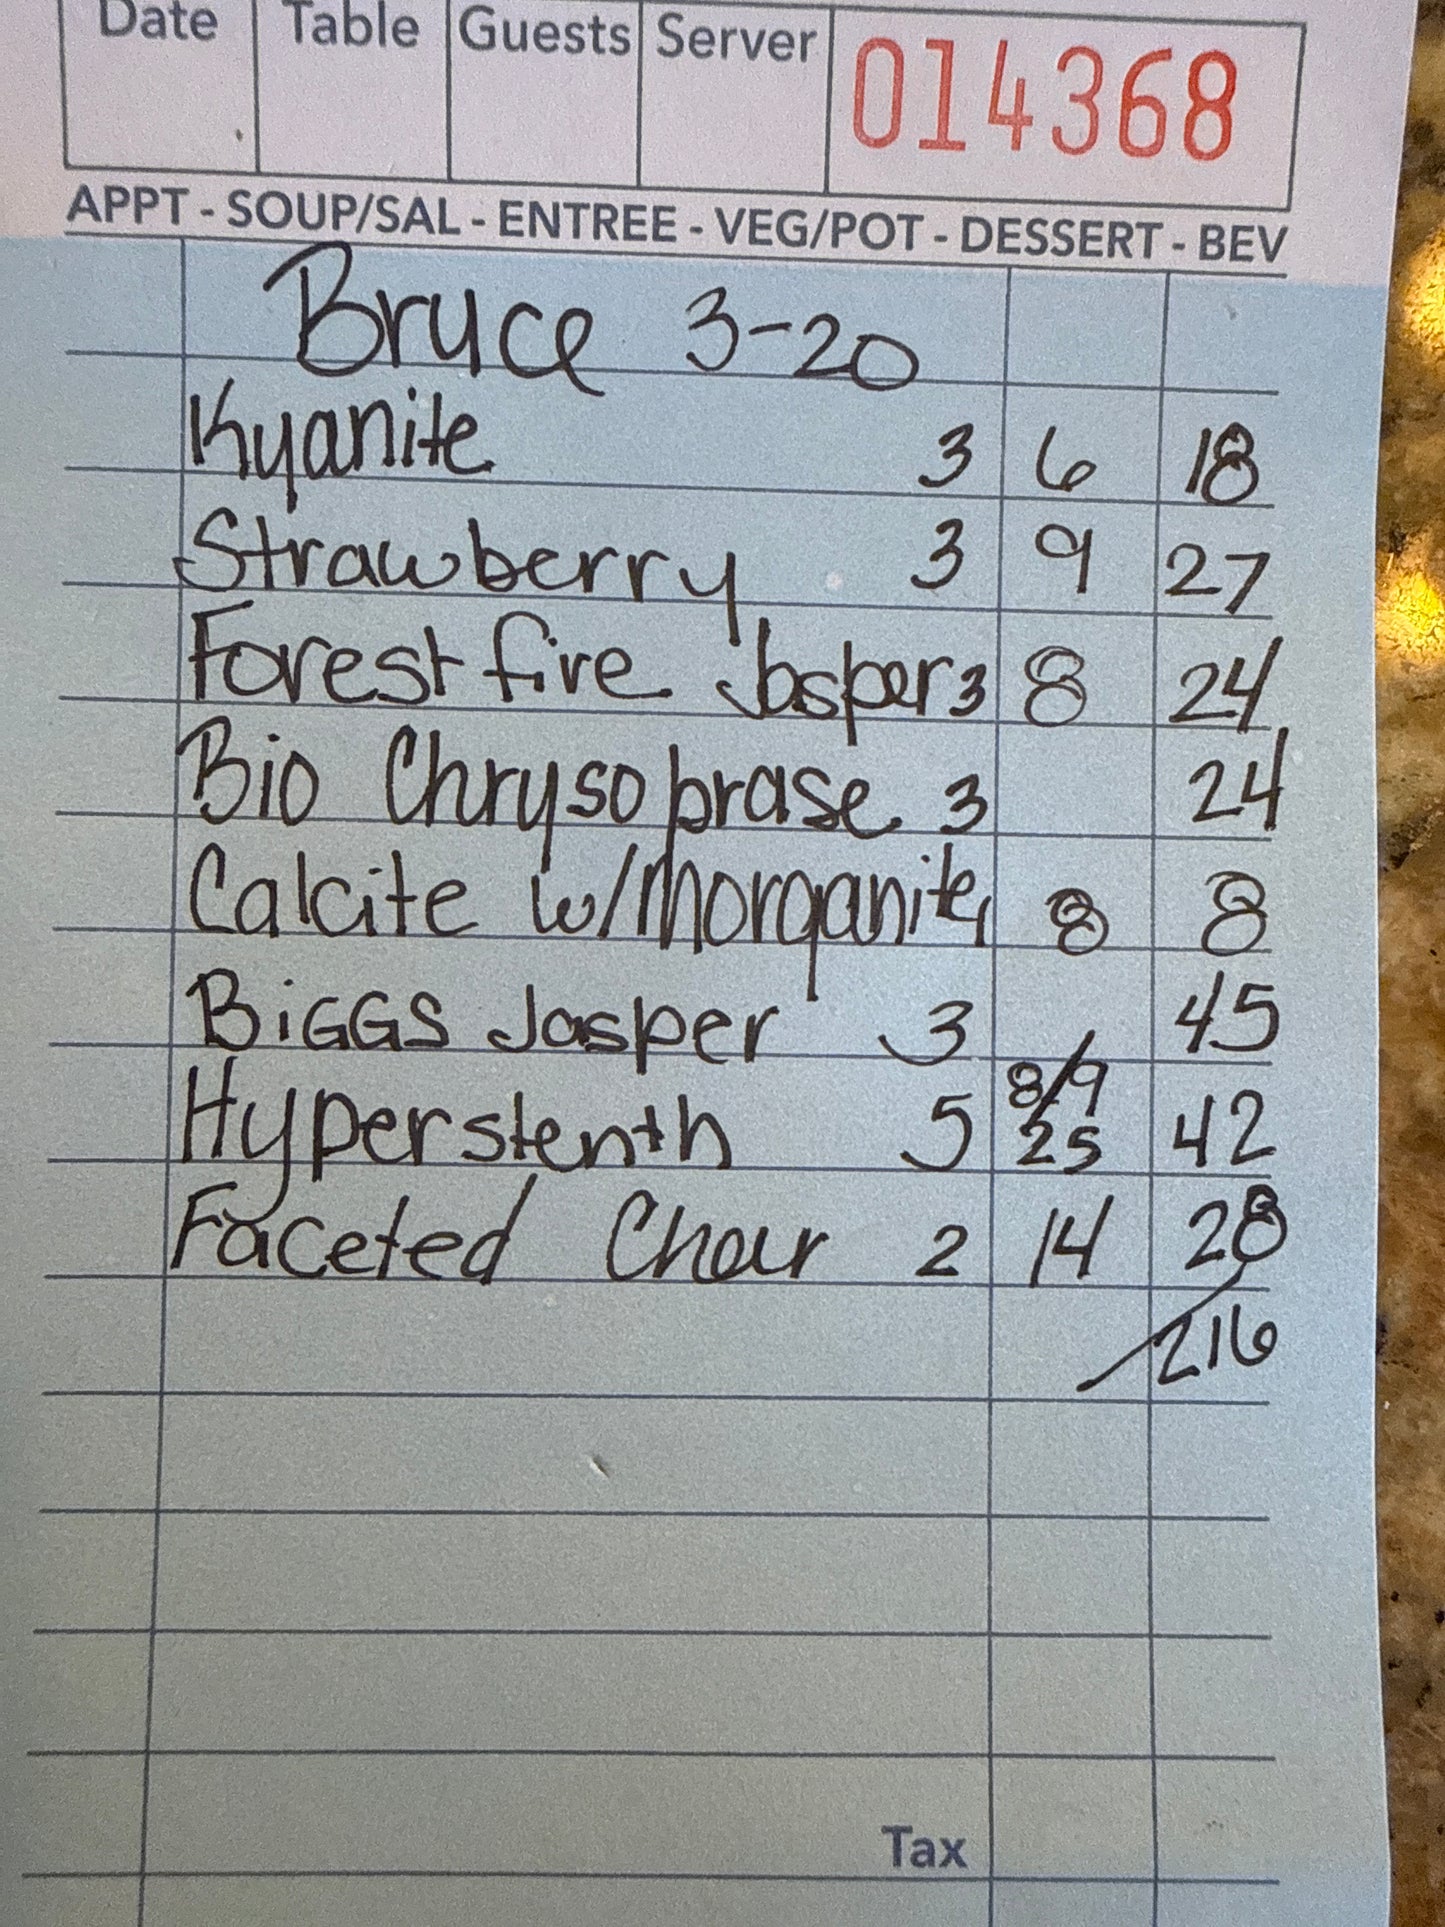 Date Table Guests Server 014368
APPT - SOUP/SAL - ENTREE - VEG/POT - DESSERT - BEV
Bryce 3-20
Kyanite 3 6 18
Strawberry 3 9 27
Forest fire Jasper 3 8 24
Bio Chrysoprase 3 24
Calcite w/morganite 1 8 8
BiGGS Jasper 3 45
Hyperstenth 5 8/9 25 42
Faceted Char 2 14 28
216
Tax